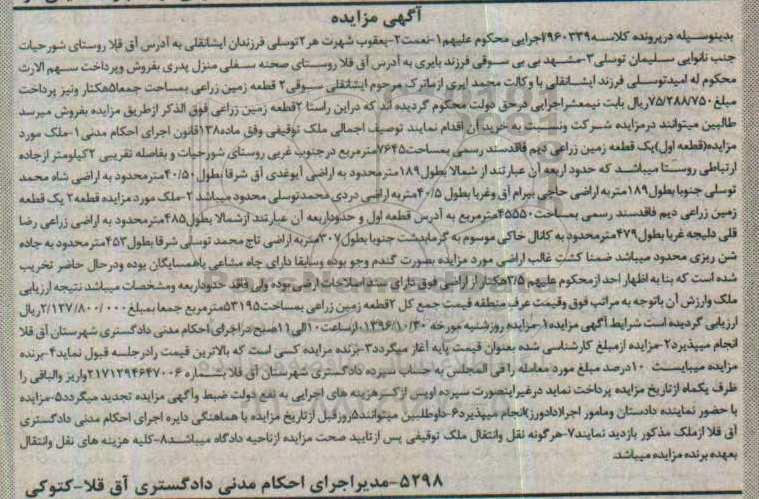 آگهی مزایده
بدینوسیله درپرونده کلاسه۷۹۶۰۳۳۹اجرایی محکوم علیهم۱-نعمت۲-یعقوب شهرت هر۲توسلی فرزندان ایشانقلی به آدرس آق قلا روستای شورحیات
جنب نانوایی سلیمان توسلی۳-مشهد بی بی سوقی فرزند بایری به آدرس آق قلا روستای صحنه سفلی منزل پدری بفروش وپرداخت سهم الارث
محکوم له امیدتوسلی فرزند ایشانقلی با وکالت محمد ایری ازماترک مرحوم ایشانقلی سبوقی۲ قطعه زمین زراعی بمساحت جمعا۵هکتار ونیز پرداخت
مبلغ۷۵/۲۸۸/۷۵۰ریال بابت نیمعشراجرایی درحق دولت محکوم گردیده اند که دراین راستا ۲قطعه زمین زراعی فوق الذکر ازطریق مزایده بفروش میرسد
طالبین میتوانند درمزایده شرکت ونسبت به خرید آن اقدام نمایند توصیف اجمالی ملک توقیفی وفق ماده۱۳۸قانون اجرای احکام مدنی۱-ملک مورد
مزایده(قطعه اول)یک قطعه زمین زراعی دیم فاقدسند رسمی بمساحت۷۶۴۵مترمربع درجنوب غربی روستای شورحیات و بفاصله تقریبی ۲کیلومتر ازجاده
ارتباطی روستا میباشد که حدود اربعه آن عبارتند از شمالا بطول۱۸۹مترمحدود به اراضی آیوغدی آق شرقا بطول۴۰/۵۰مترمحدود به اراضی شاه محمد
توسلی جنوبا بطول۱۸۹متربه اراضی حاجی بیرام آق وغربا بطول ۴۰/۵متربه اراضی دردی محمدتوسلی محدود میباشد ۲-ملک مورد مزایده قطعه۲ یک قطعه
زمین زراعی دیم فاقدسند رسمی بمساحت۴۵۵۵۰مترمربع به آدرس قطعه اول و حدوداربعه آن عبارتند ازشمالا بطول۴۸۵مترمحدود به اراضی زراعی رضا
قلی دلیجه غربا بطول۴۷۹مترمحدود به کانال خاکی موسوم به گرمابدشت جنوبا بطول۳۰۷متربه اراضی تاج محمد توسلی شرقا بطول۴۵۳مترمحدود به جاده
شن ریزی محدود میباشد ضمنا کشت غالب اراضی مورد مزایده بصورت گندم وجو بوده وسابقا دارای چاه مشاعی باهمسایگان بوده ودرحال حاضر تخریب
شده است که بنا به اظهار احد ازمحکوم علیهم ۳/۵هکتار از آراضی فوق دارای سند اصلاحات ارضی بوده ولی فاقد حدوداربعه ومشخصات میباشد نتیجه ارزیابی
ملک وارزش آن باتوجه به مراتب فوق وقیمت عرف منطقه قیمت جمع کل ۲قطعه زمین زراعی بمساحت۵۳۱۹۵مترمربع جمعا بمبلغ۲/۱۲۷/۸۰۰/۰۰۰ریال
ارزیابی گردیده است شرایط آگهی مزایده۱-مزایده روزشنبه مورخه ۱۳۹۶/۱۰/۳۰ ازساعت۱۰الی۱۱صبح دراجرای احکام مدنی دادگستری شهرستان آق قلا
انجام میپذیرد۲-مزایده ازمبلغ کارشناسی شده بعنوان قیمت پایه آغاز میگردد۳-برنده مزایده کسی است که بالاترین قیمت رادرجلسه قبول نماید۴-برنده
مزایده میبایست ۱۰درصد مبلغ مورد معامله را فی المجلس به حساب سپرده دادگستری شهرستان آق قلا بشماره ۲۱۷۱۲۹۴۶۴۷۰۰۶واریز والباقی را
ظرف یکماه ازتاریخ مزایده پرداخت نماید درغیراینصورت سپرده اوپس ازکسرهزینه های اجرایی به نفع دولت ضبط وآگهی مزایده تجدید میگردد۵-مزایده
با حضور نماینده دادستان ومامور اجرا(دادورز)انجام میپذیرد۶-داوطلبین میتوانند۵روزقبل ازتاریخ مزایده با هماهنگی دایره اجرای احکام مدنی دادگستری
آق قلا ازملک مذکور بازدید نمایند۷-هرگونه نقل وانتقال ملک توقیفی پس ازتایید صحت مزایده ازناحیه دادگاه میباشد۸-کلیه هزینه های نقل وانتقال
بعهده برنده مزایده میباشد.
۵۲۹۸-مدیراجرای احکام مدنی دادگستری آق قلا-کتوکی